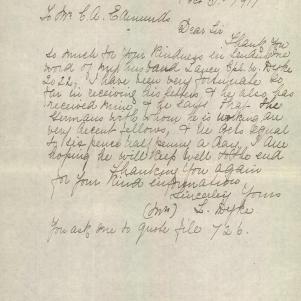 To Mr. C. A. Edmunds
Dear Sir
Thank You
so much for Your Kindness in sending me
word of my husband Lance Cpl. W. Dyke
2022. I have been very fortunate so
far in receiving his letters & he also has
received mine & he says that the
Germans with whom he is working are
very decent fellows, & he gets equal
to six pence half penny a day, I am
hoping he will keep well to the end
Thanking You again
for Your kind information
Sincerely Yours
(Mrs) L. Dyke
You ask me to quote file 726.